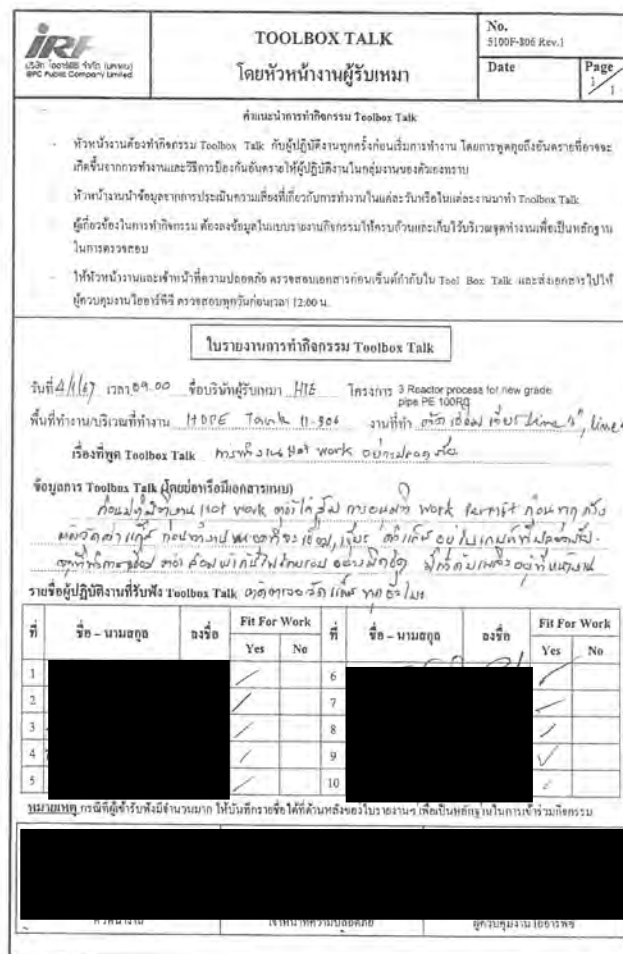 IRPC
บริษัท ไออาร์พีซี จำกัด (มหาชน)
IRPC Public Company Limited
TOOLBOX TALK
โดยหัวหน้างานผู้รับเหมา
No.
5100F-806 Rev.1
Date
Page
1/1
คำแนะนำการทำกิจกรรม Toolbox Talk
- หัวหน้างานต้องทำกิจกรรม Toolbox Talk กับผู้ปฏิบัติงานทุกครั้งก่อนเริ่มการทำงาน โดยการพูดคุยถึงอันตรายที่อาจจะ
เกิดขึ้นจากการทำงานและวิธีการป้องกันอันตรายให้ผู้ปฏิบัติงานในกลุ่มงานของตัวเองทราบ
- หัวหน้างานนำข้อมูลจากการประเมินความเสี่ยงที่เกี่ยวกับการทำงานในแต่ละวันหรือในแต่ละงานมาทำ Toolbox Talk
- ผู้เกี่ยวข้องในการทำกิจกรรม ต้องลงข้อมูลในแบบรายงานกิจกรรมให้ครบถ้วนและเก็บไว้บริเวณจุดทำงานเพื่อเป็นหลักฐาน
ในการตรวจสอบ
- ให้หัวหน้างานและเจ้าหน้าที่ความปลอดภัย ตรวจสอบเอกสารก่อนเซ็นต์กำกับใน Tool Box Talk และส่งเอกสารไปให้
ผู้ควบคุมงานไออาร์พีซี ตรวจสอบทุกวันก่อนเวลา 12:00 น.
ใบรายงานการทำกิจกรรม Toolbox Talk
วันที่ 4/1/67 เวลา 09.00 ชื่อบริษัทผู้รับเหมา HTE โครงการ 3 Reactor process for new grade
pipe PE 100RC
พื้นที่ทำงาน/บริเวณที่ทำงาน HDPE Tank 11-306 งานที่ทำ ตัด เชื่อม เจียร line
เรื่องที่พูด Toolbox Talk การทำงาน Hot work อย่างปลอดภัย
ข้อมูลการ Toolbox Talk (โดยย่อหรือมีเอกสารแนบ)
ก่อนปฏิบัติงาน Hot work ต้องได้รับ การอนุมัติ work permit ก่อนทุกครั้ง
รายชื่อผู้ปฏิบัติงานที่รับฟัง Toolbox Talk
ที่ ชื่อ – นามสกุล ลงชื่อ Fit For Work ที่ ชื่อ – นามสกุล ลงชื่อ Fit For Work
Yes No Yes No
1 / 6 /
2 / 7 /
3 / 8 /
4 / 9 /
5 / 10 /
หมายเหตุ กรณีที่ผู้เข้ารับฟังมีจำนวนมาก ให้บันทึกรายชื่อได้ที่ด้านหลังของใบรายงานฯ เพื่อเป็นหลักฐานในการเข้าร่วมกิจกรรม
หัวหน้างาน เจ้าหน้าที่ความปลอดภัย ผู้ควบคุมงานไออาร์พีซี